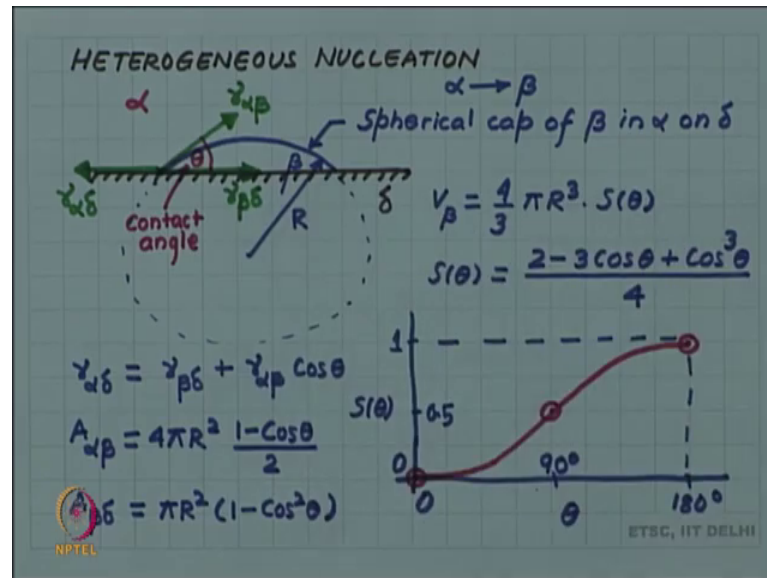 HETEROGENEOUS NUCLEATION
α → β
α
γαβ
Spherical cap of β in α on δ
θ
β
γαδ
γβδ
δ
contact
angle
R
Vβ = 4/3 πR³. S(θ)
S(θ) = (2 - 3 Cosθ + Cos³θ)/4
γαδ = γβδ + γαβ Cosθ
Aαβ = 4πR² (1-Cosθ)/2
Aβδ = πR² (1-Cos²θ)
1
S(θ)
0.5
0
0
90°
180°
θ
NPTEL
ETSC, IIT DELHI